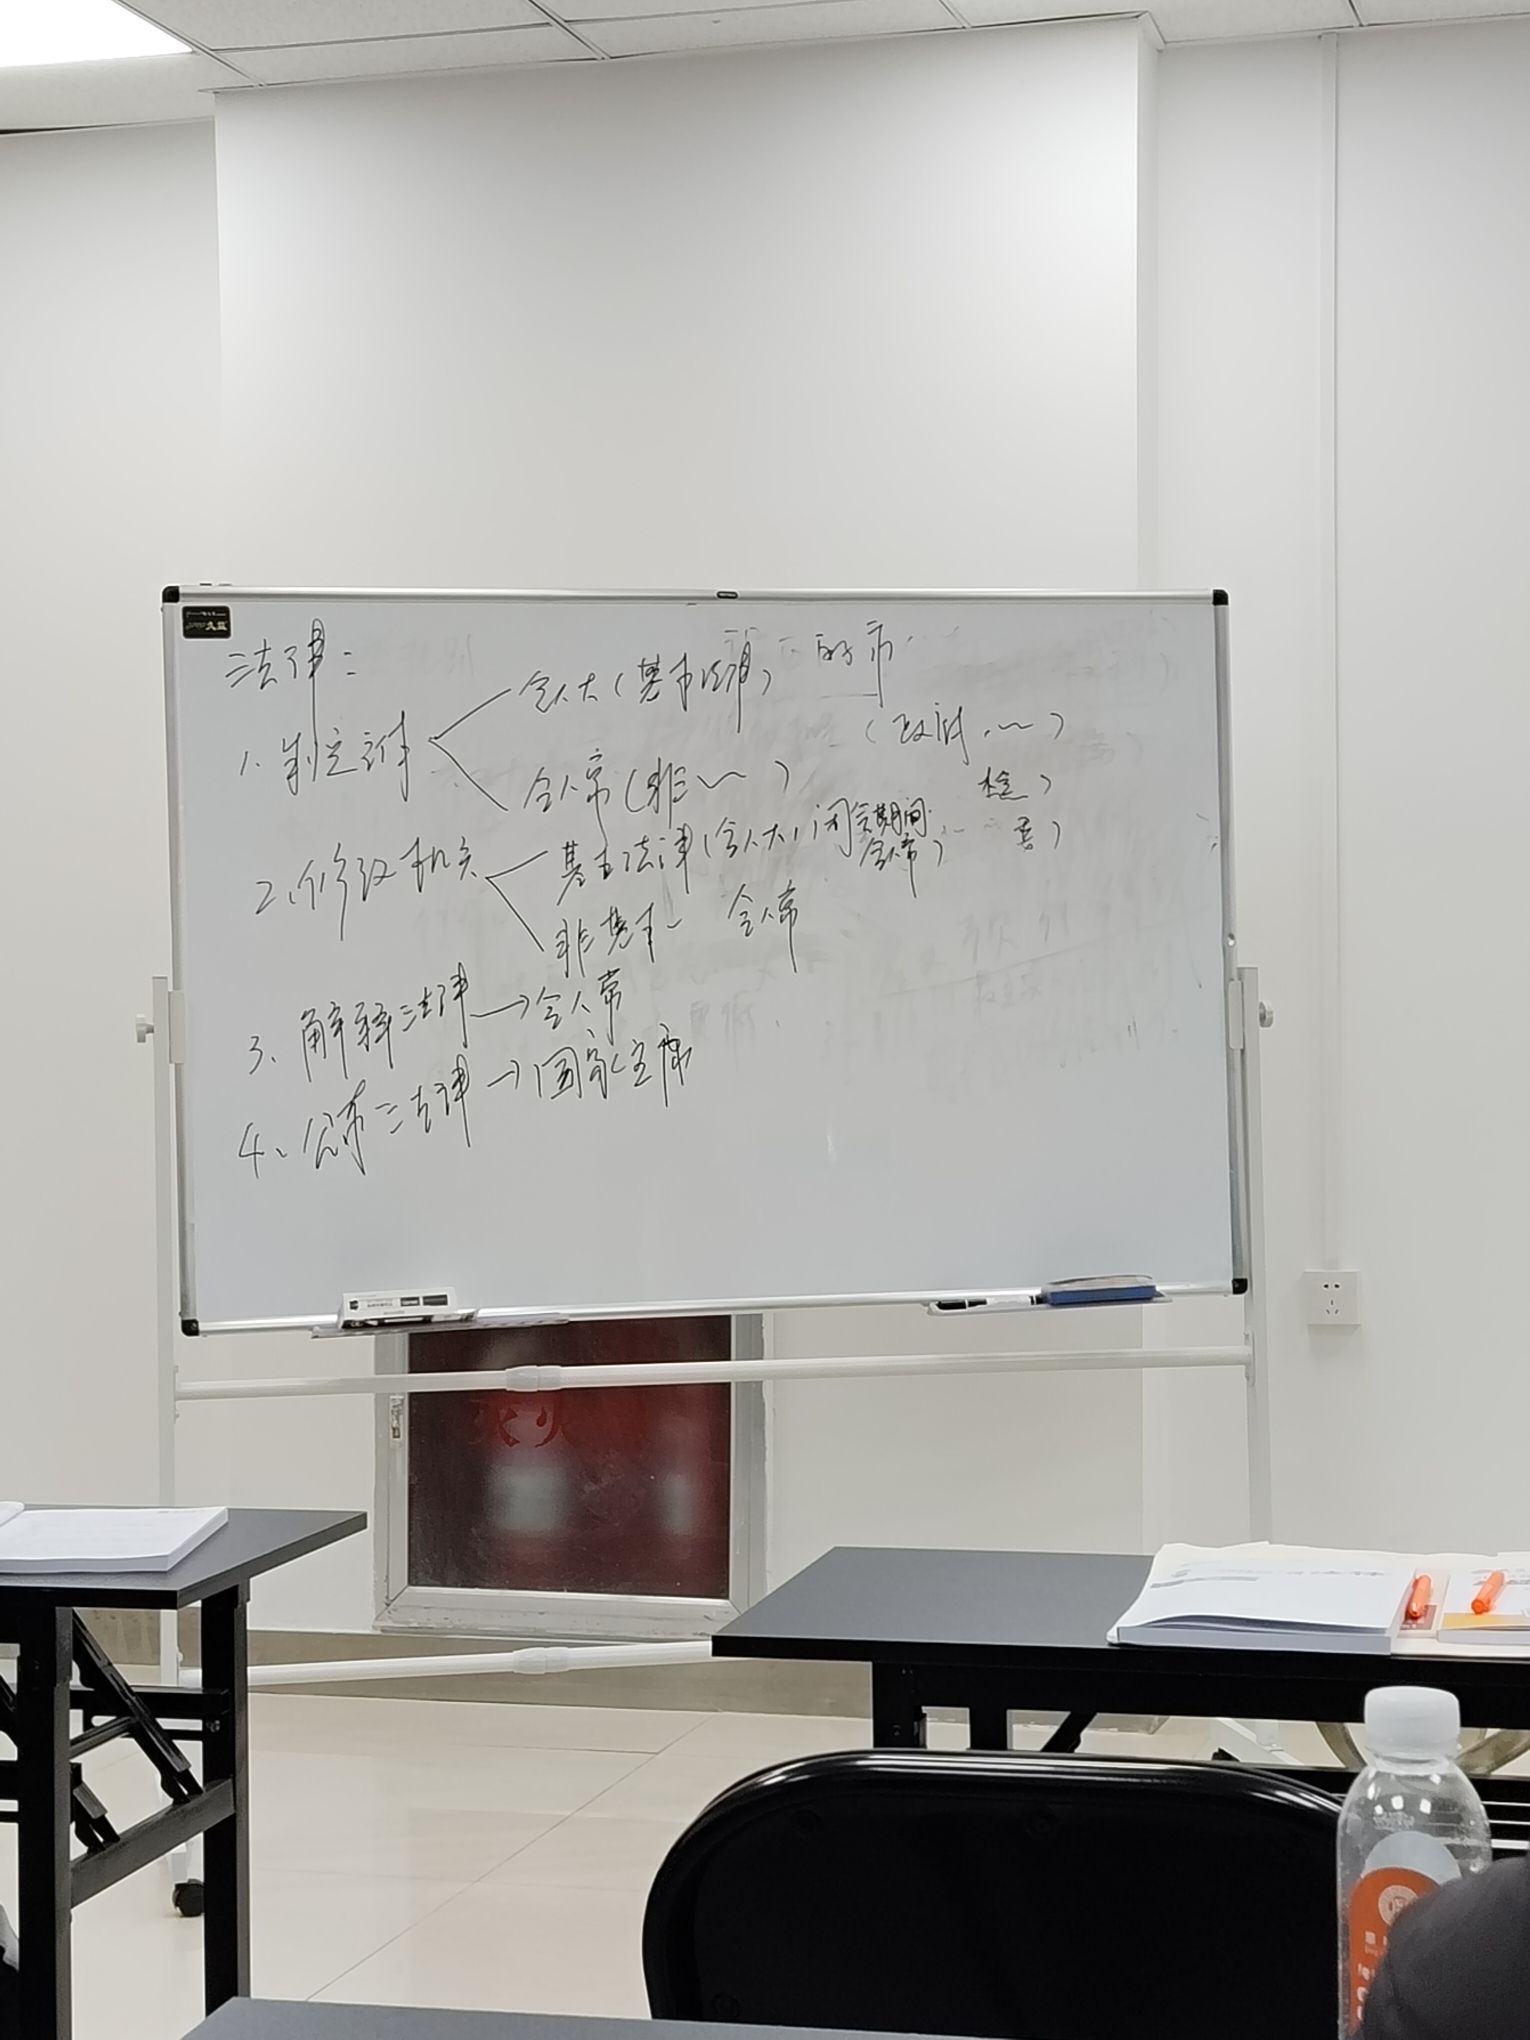 法律:
1、制定法律 全人大(基本法律)
全人常(非~)
的市
(政府、~)
检)
委)
2、修改机关 基本法律(全人大,闭会期间
全人常)
非基本~ 全人常
3、解释法律→全人常
4、公布法律→国家主席
灭火